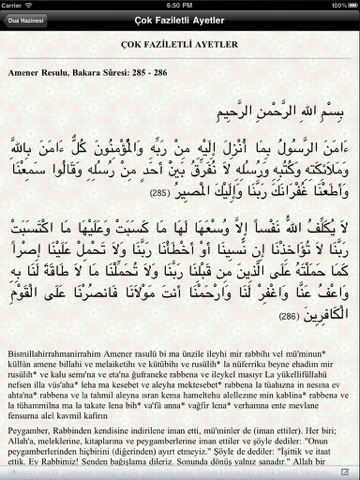 Carrier 6:50 PM 100%
Dua Hazinesi Çok Faziletli Ayetler
ÇOK FAZİLETLİ AYETLER
Amener Resulu, Bakara Sûresi: 285 - 286
بِسْمِ اللهِ الرَّحْمٰنِ الرَّحِيمِ
ءَامَنَ الرَّسُولُ بِمَا أُنْزِلَ إِلَيْهِ مِنْ رَبِّهِ وَالْمُؤْمِنُونَ كُلٌّ ءَامَنَ بِاللَّهِ
وَمَلاَئِكَتِهِ وَكُتُبِهِ وَرُسُلِهِ لاَ نُفَرِّقُ بَيْنَ أَحَدٍ مِنْ رُسُلِهِ وَقَالُوا سَمِعْنَا
وَأَطَعْنَا غُفْرَانَكَ رَبَّنَا وَإِلَيْكَ الْمَصِيرُ (285)
لاَ يُكَلِّفُ اللهُ نَفْساً إِلاَّ وُسْعَهَا لَهَا مَا كَسَبَتْ وَعَلَيْهَا مَا اكْتَسَبَتْ
رَبَّنَا لاَ تُؤَاخِذْنَا إِن نَّسِينَا أَوْ أَخْطَأْنَا رَبَّنَا وَلاَ تَحْمِلْ عَلَيْنَا إِصْراً
كَمَا حَمَلْتَهُ عَلَى الَّذِينَ مِن قَبْلِنَا رَبَّنَا وَلاَ تُحَمِّلْنَا مَا لاَ طَاقَةَ لَنَا بِهِ
وَاعْفُ عَنَّا وَاغْفِرْ لَنَا وَارْحَمْنَا أَنتَ مَوْلاَنَا فَانصُرْنَا عَلَى الْقَوْمِ
الْكَافِرِينَ (286)
Bismillahirrahmanirrahim Amener rasulü bi ma ünzile ileyhi mir rabbihi vel mü'minun*
küllün amene billahi ve melaiketihi ve kütübihi ve rusülih* la nüferriku beyne ehadim mir
rusülih* ve kalu semi'na ve eta'na ğufraneke rabbena ve ileykel masiyr La yükellifüllahü
nefsen illa vüs'aha* leha ma kesebet ve aleyha mektesebet* rabbena la tüahızna in nesina ev
ahta'na* rabbena ve la tahmil aleyna ısran kema hameltehu alellezıne min kablina* rabbena ve
la tühammilna ma la takate lena bih* va'fü anna* vağfir lena* verhamna ente mevlane
fensurna alel kavmil kafirın
Peygamber, Rabbinden kendisine indirilene iman etti, mü'minler de (iman ettiler). Her biri;
Allah'a, meleklerine, kitaplarına ve peygamberlerine iman ettiler ve şöyle dediler: "Onun
peygamberlerinden hiçbirini (diğerinden) ayırt etmeyiz." Şöyle de dediler: "İşittik ve itaat
ettik. Ey Rabbimiz! Senden bağışlama dileriz. Sonunda dönüş yalnız sanadır." Allah bir